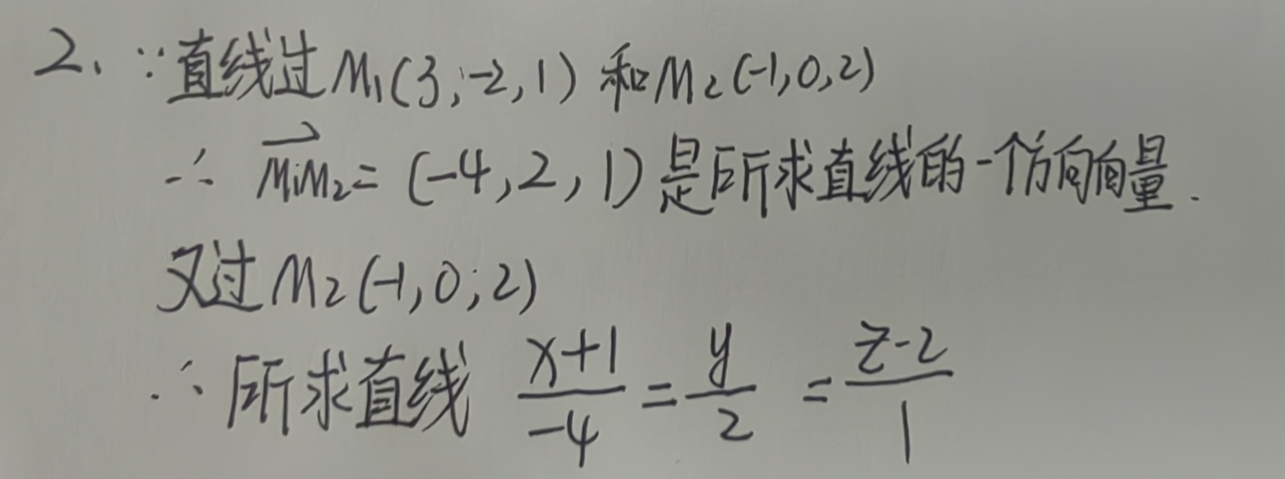 2、∵直线过M₁(3,-2,1)和M₂(-1,0,2)
∴ $\overrightarrow{M_1M_2}$=(-4,2,1)是所求直线的一个方向向量.
又过M₂(-1,0,2)
∴所求直线 $\frac{x+1}{-4}=\frac{y}{2}=\frac{z-2}{1}$